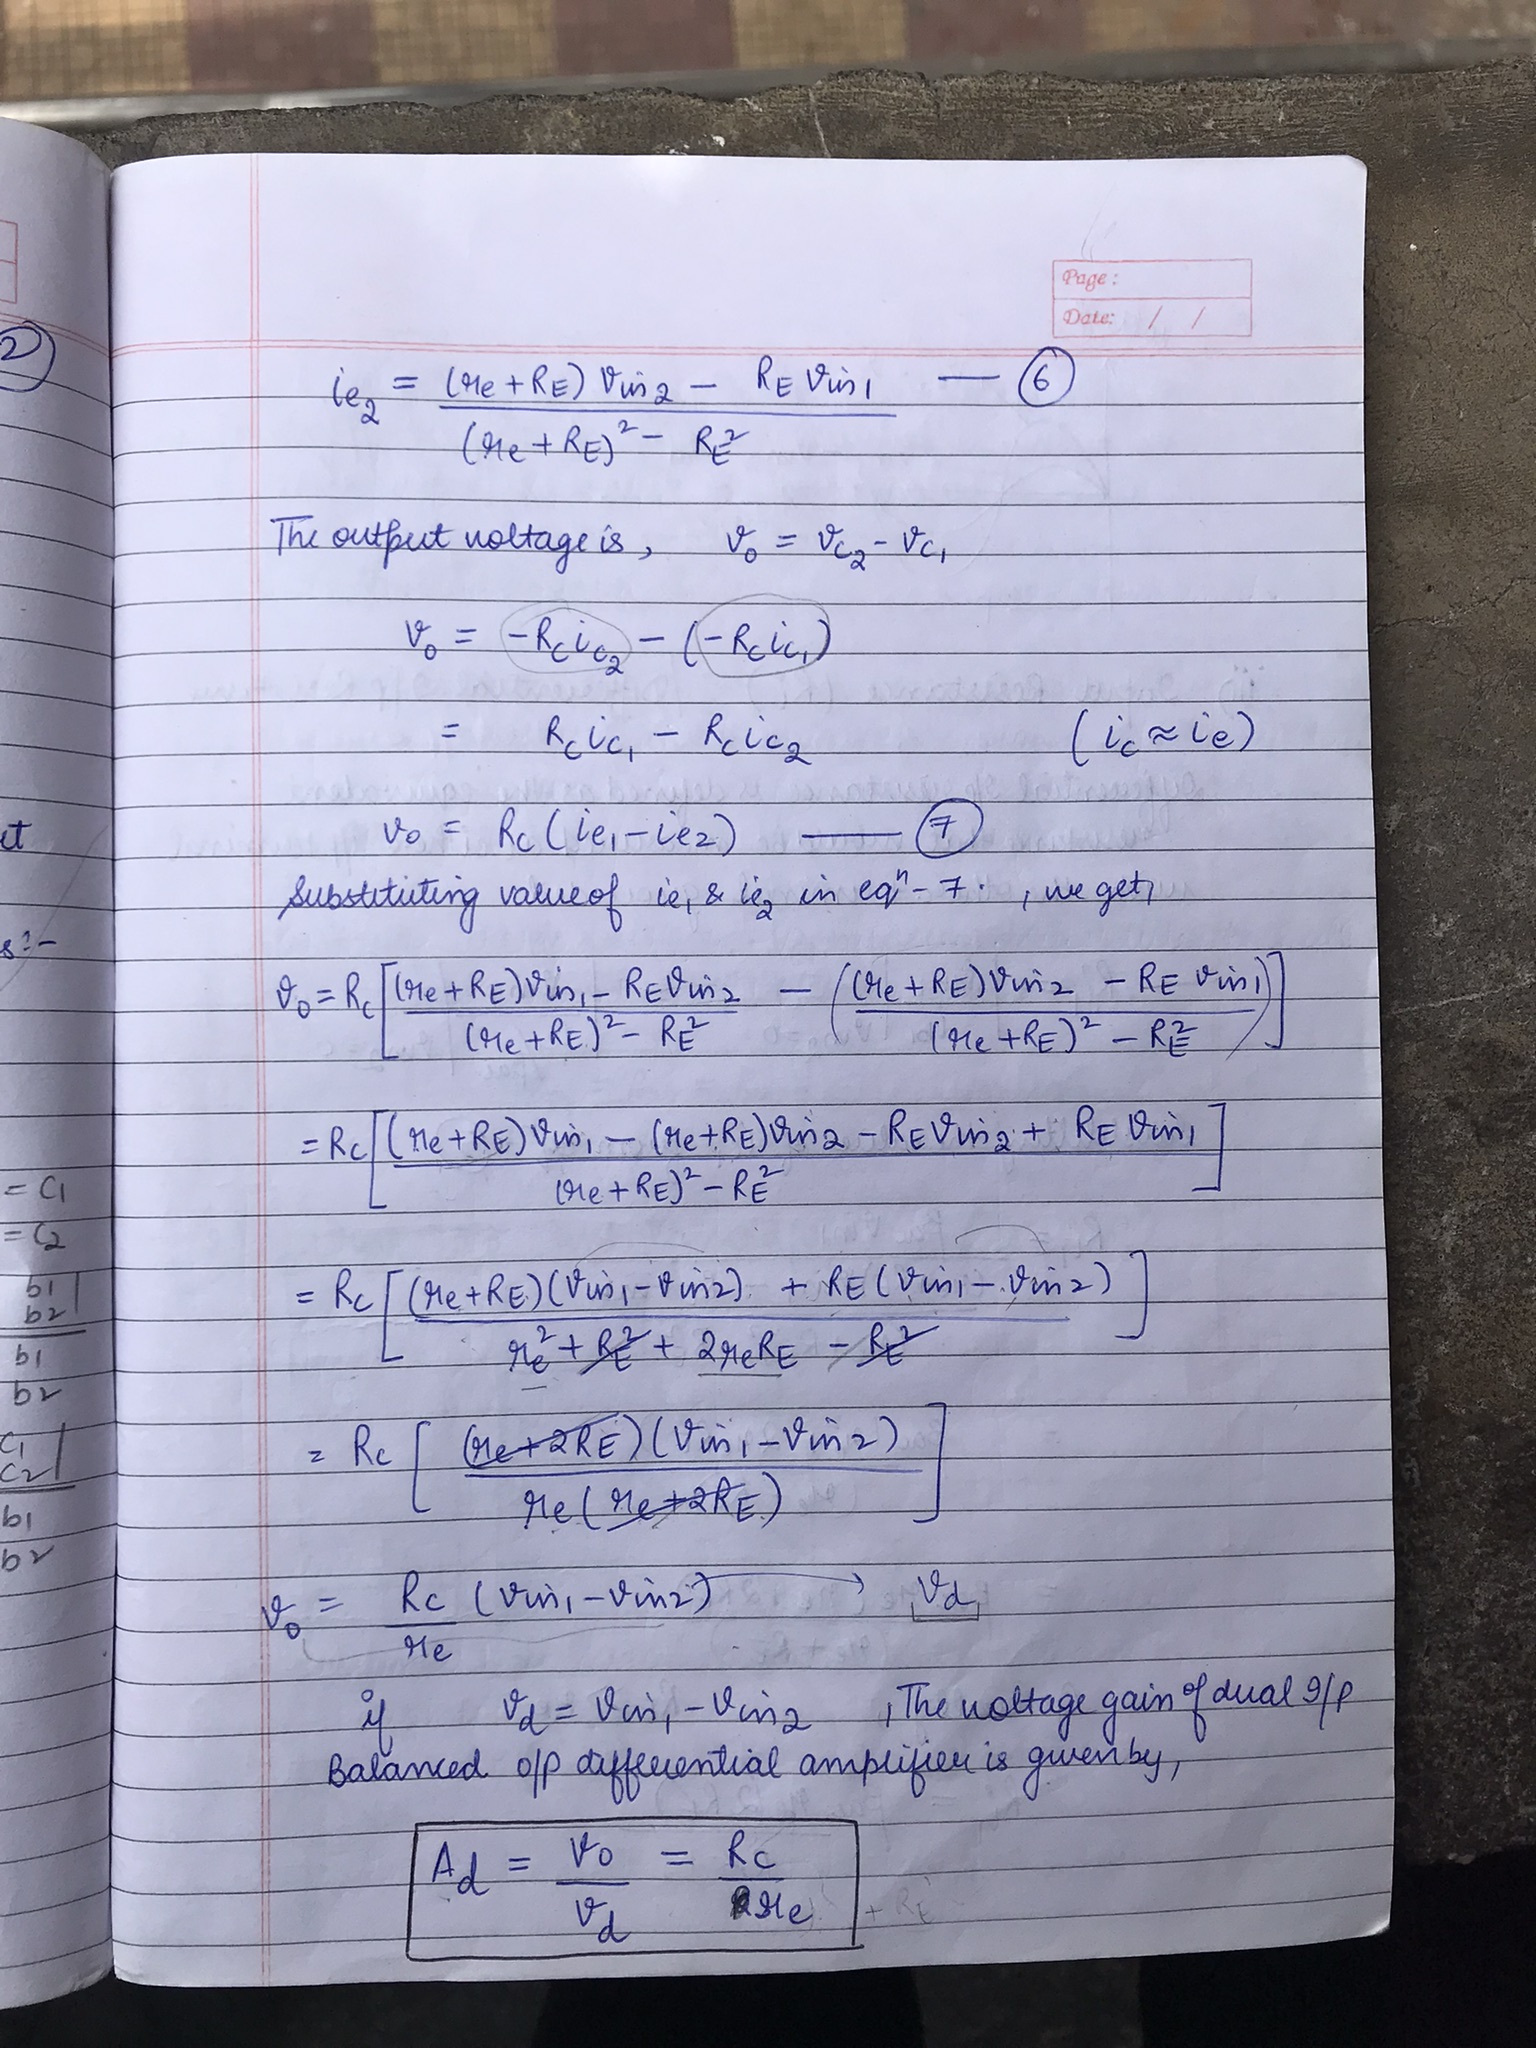 Page:
Date: / /
2
ie₂ = (re + RE) Vin2 - RE Vin1 — 6
(re + RE)² - RE²
The output voltage is, Vo = Vc₂ - Vc₁
Vo = -Rc ic₂ - (-Rc ic₁)
= Rc ic₁ - Rc ic₂ (ic ≈ ie)
Vo = Rc (ie₁ - ie2) — 7
Substituting value of ie₁ & ie₂ in eqⁿ - 7. , we get,
Vo = Rc [(re + RE) Vin₁ - RE Vin2 - ((re + RE) Vin2 - RE Vin1)]
(re + RE)² - RE² (re + RE)² - RE²
= Rc [(re + RE) Vin₁ - (re + RE) Vin2 - RE Vin2 + RE Vin1]
(re + RE)² - RE²
= Rc [(re + RE) (Vin₁ - Vin2) + RE (Vin₁ - Vin2)]
re² + RE² + 2reRE - RE²
= Rc [(re + 2RE) (Vin₁ - Vin2)]
re (re + 2RE)
Vo = Rc (Vin₁ - Vin2) → Vd
re
if Vd = Vin₁ - Vin2 , The voltage gain of dual I/p
Balanced o/p differential amplifier is given by,
Ad = Vo = Rc
Vd re
et
s:-
= C1
= C2
b1
b2
b1
b2
C1
C2
b1
b2